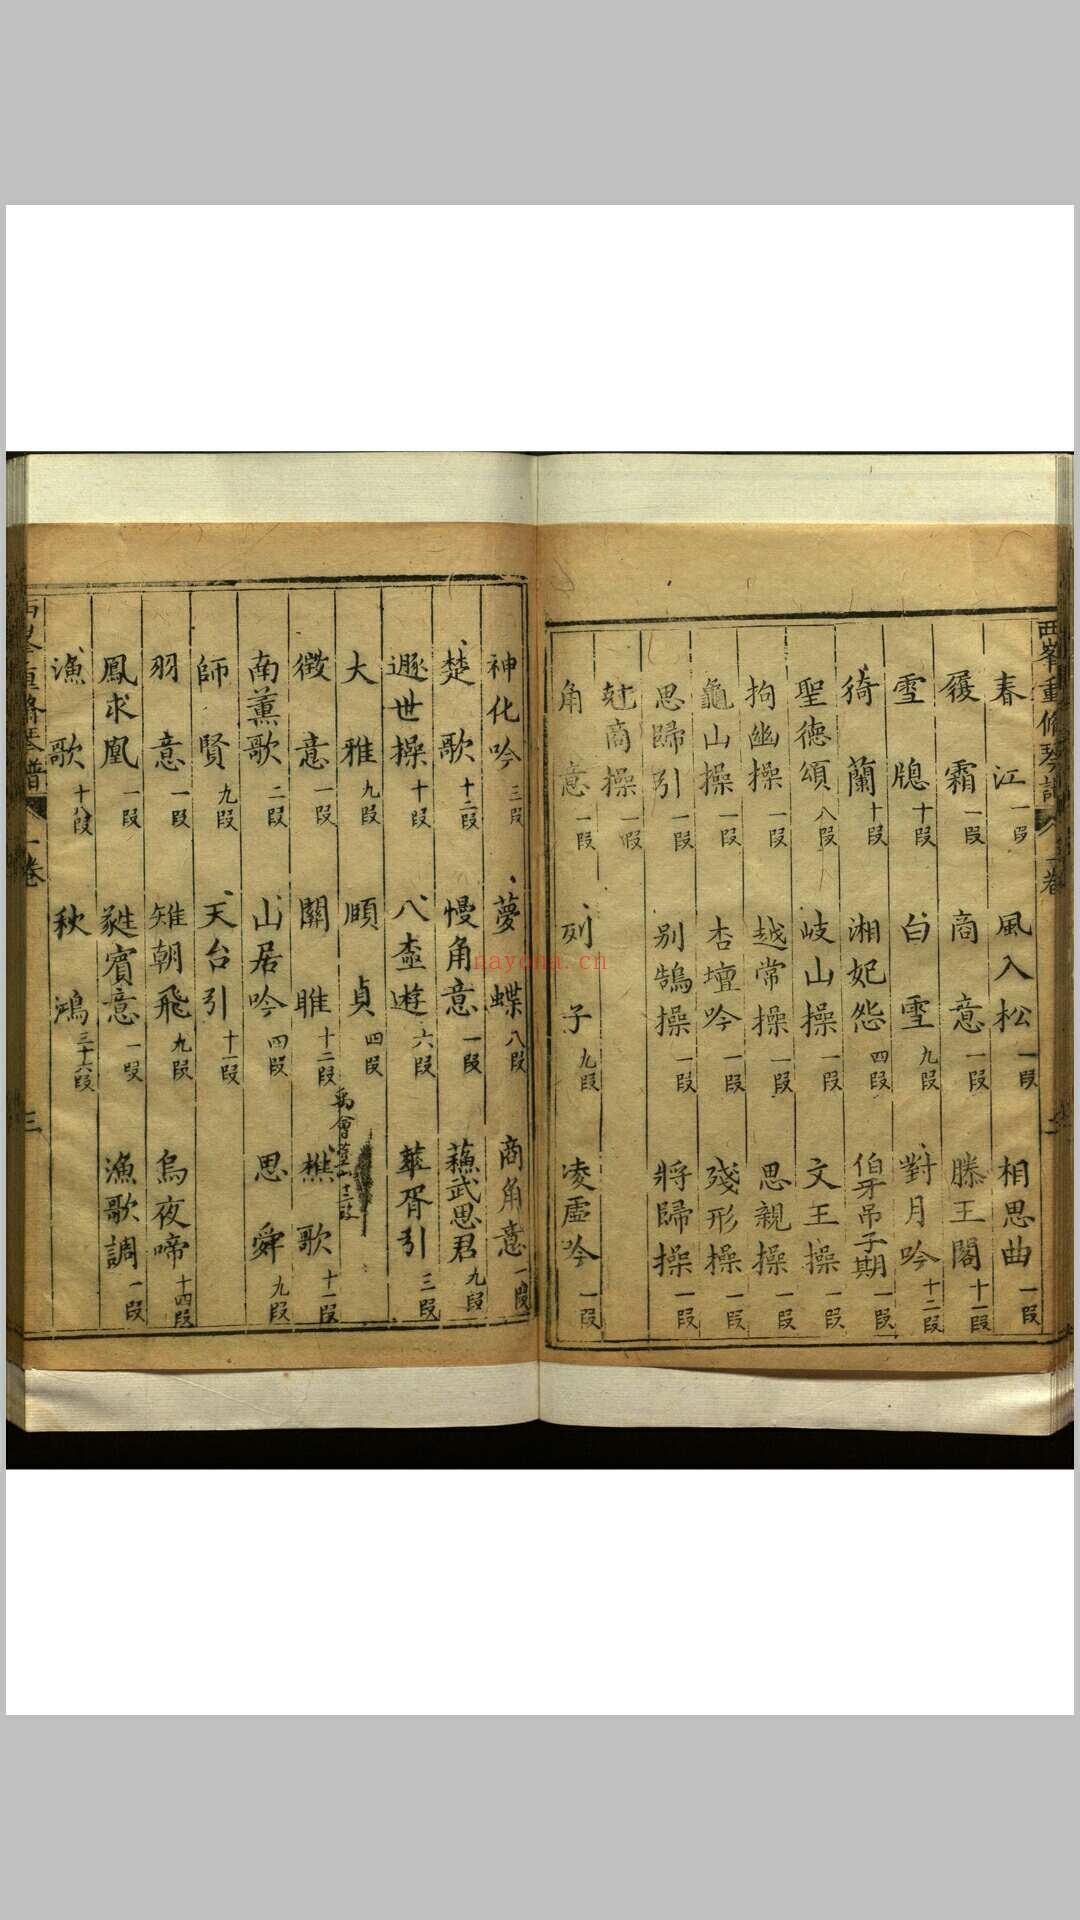 春江一段 風入松一段 相思曲一段
履霜一段 商意一段 滕王閣十一段
雪牕十段 白雪九段 對月吟十二段
猗蘭十段 湘妃怨四段 伯牙吊子期一段
聖德頌八段 岐山操一段 文王操一段
拘幽操一段 越常操一段 思親操一段
龜山操一段 杏壇吟一段 殘形操一段
思歸引一段 别鵠操一段 將歸操一段
商操一段
角意一段 列子九段 凌虛吟一段
神化吟三段 夢蝶八段 商角意一段
楚歌十二段 慢角意一段 蘇武思君九段
遯世操十段 八極遊六段 華胥引三段
大雅九段 頤貞四段
禹會
徵意一段 關雎十二段 樵歌十一段
南薰歌二段 山居吟四段 思舜九段
師賢九段 天台引十一段
羽意一段 雉朝飛九段 烏夜啼十四段
鳳求凰一段 蕤賓意一段 漁歌調一段
漁歌十八段 秋鴻三十六段
西峯重脩琴譜 一卷 三
nayona.cn